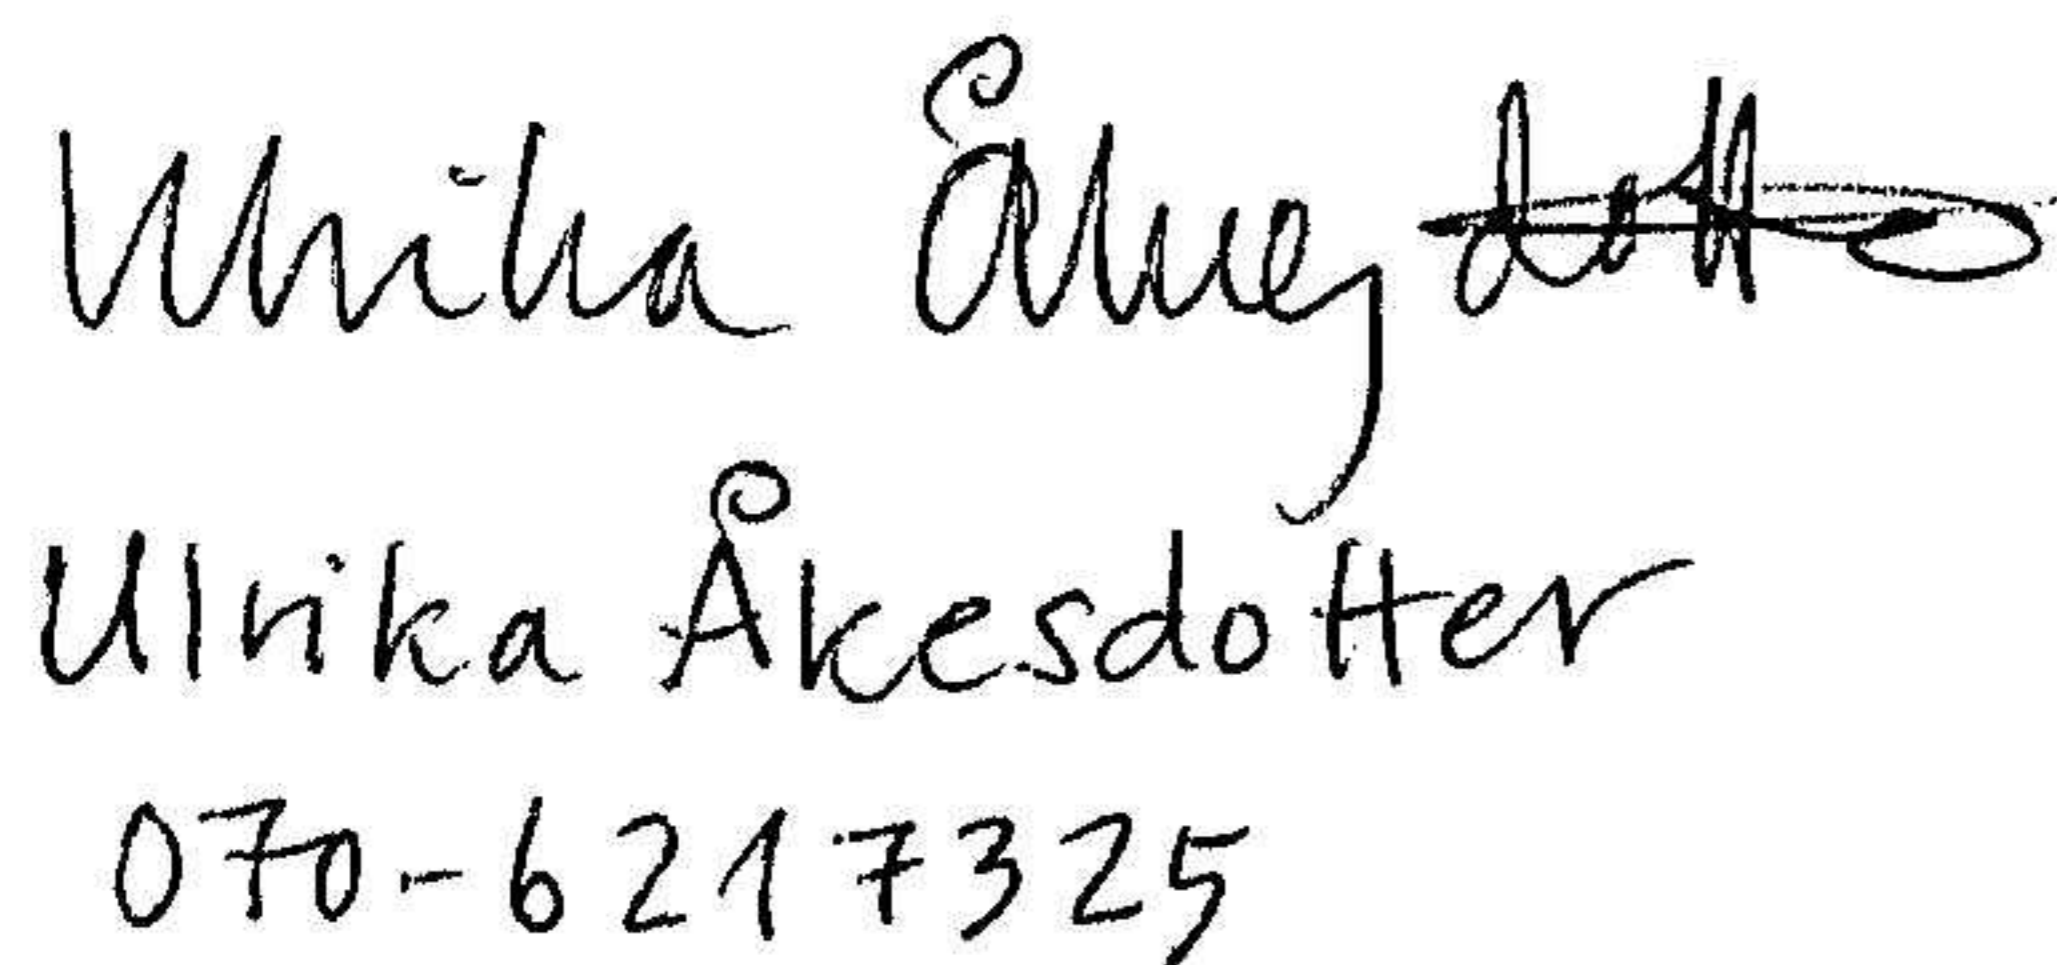 Ulrika Åkesdotter
Ulrika Åkesdotter
070-6217325